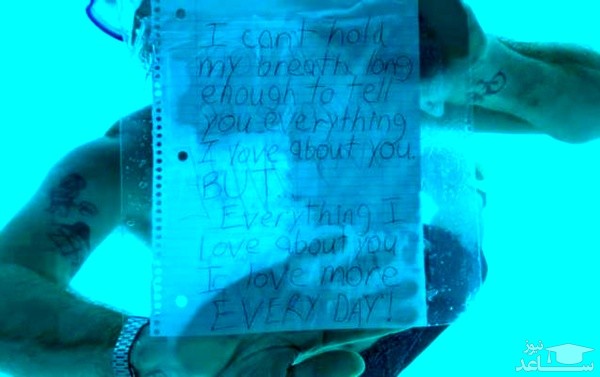 I can't hold
my breath long
enough to tell
you everything
I love about you.
BUT
Everything I
Love about you
I love more
EVERY DAY!
نیوز
ساعد